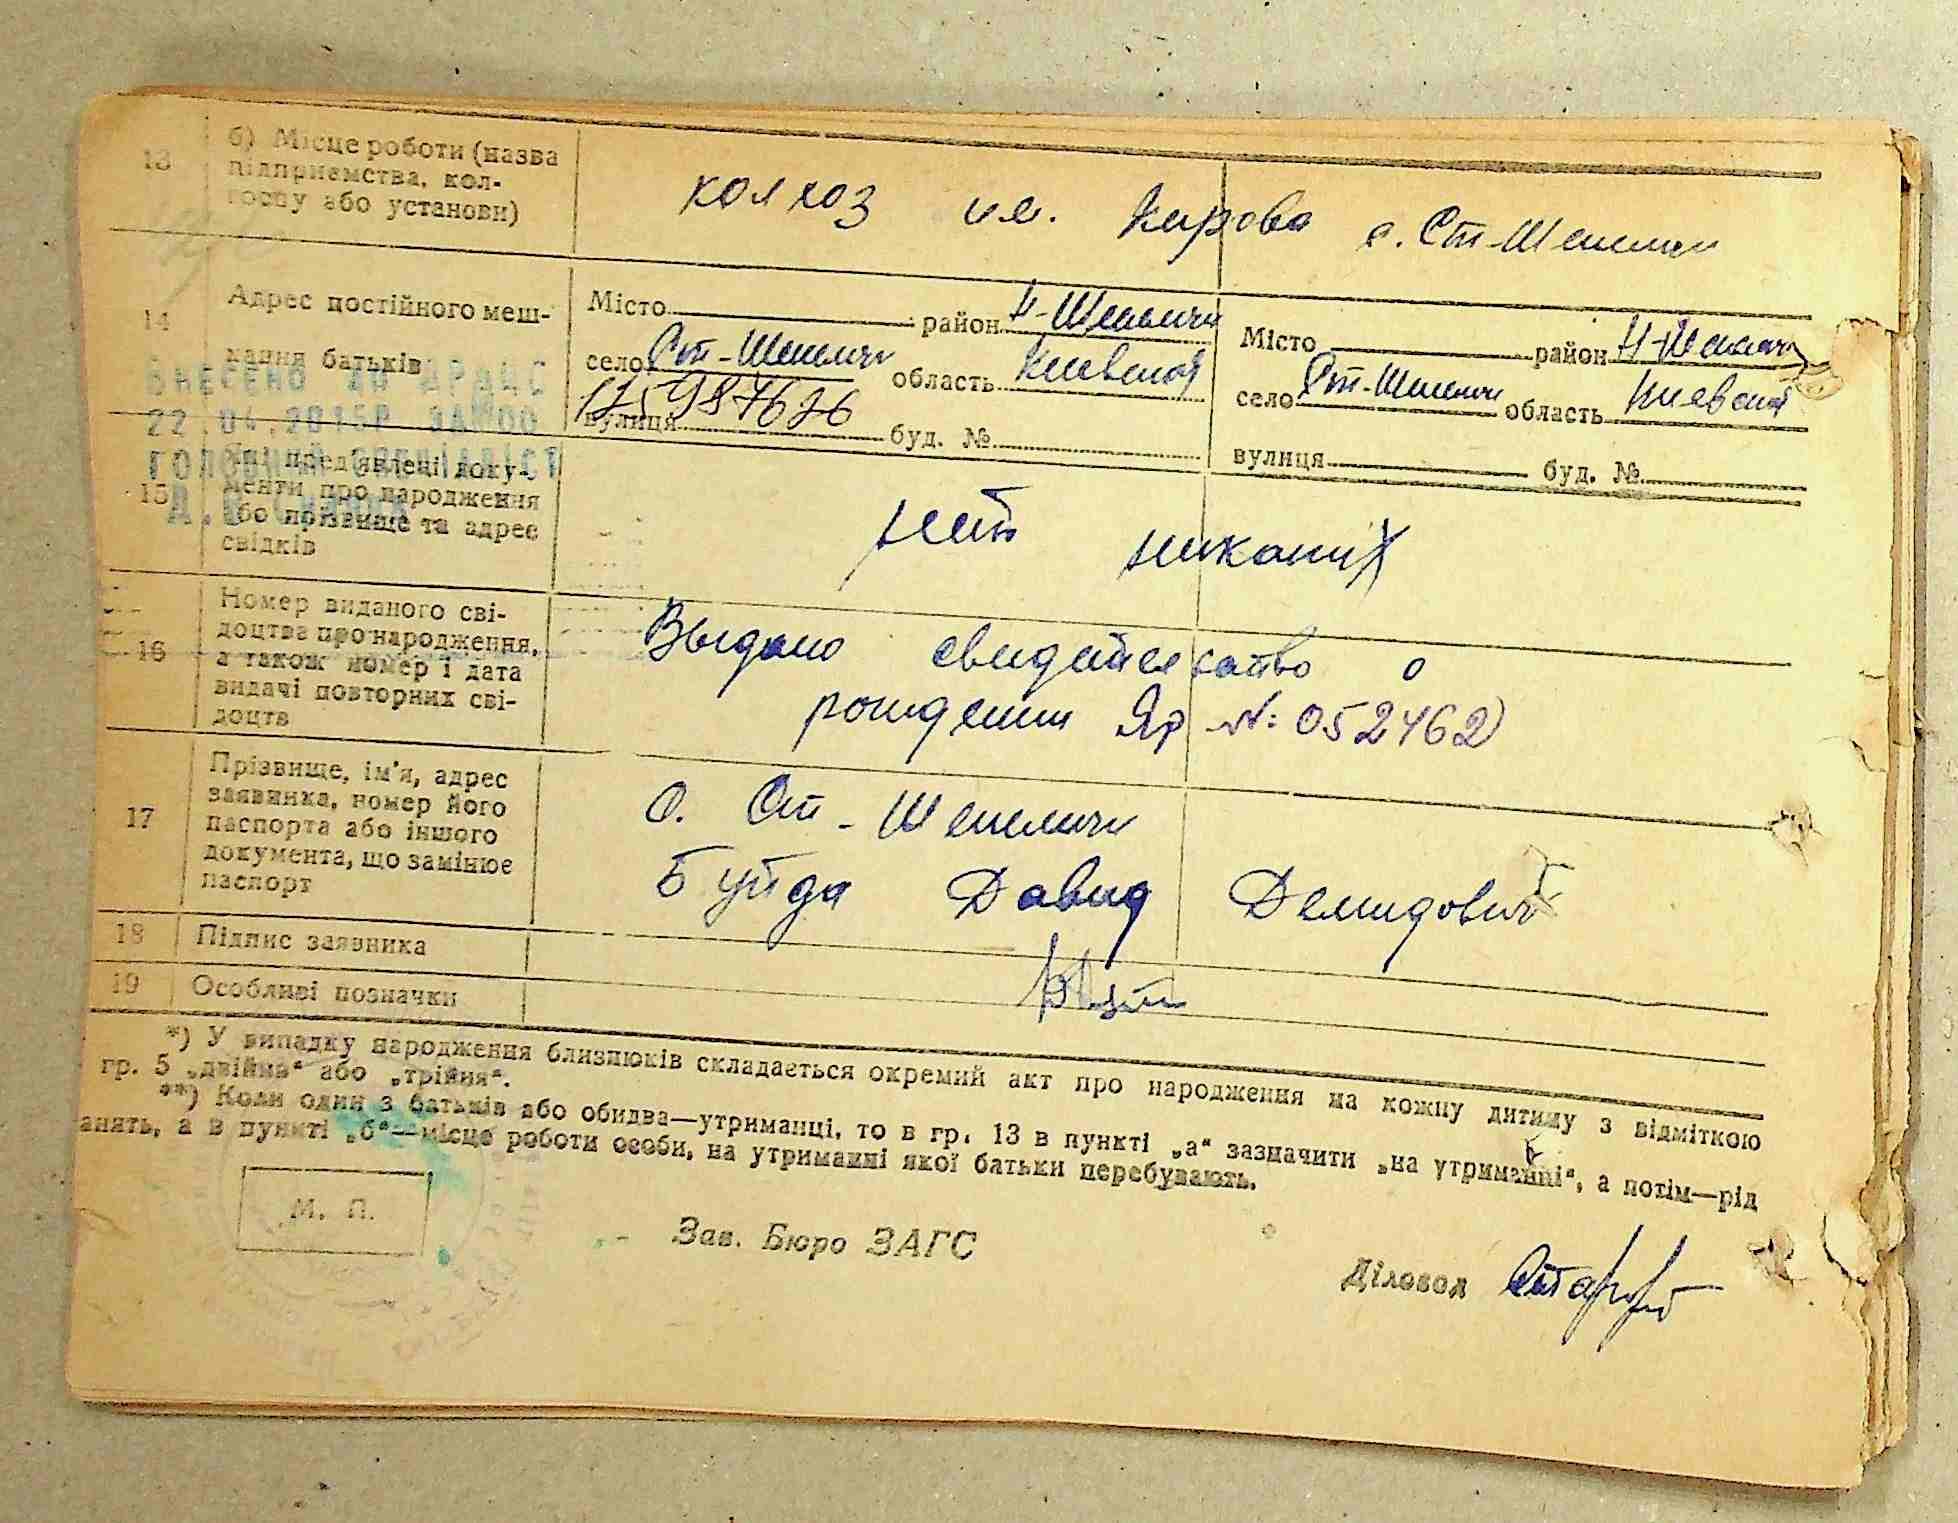 13
б) Місце роботи (назва
підприємства, кол-
госпу або установи)
колхоз им. Кирова с. Ст-Шепеличи
14
Адрес постійного меш-
кання батьків
Місто район Н-Шепеличи
село Ст-Шепеличи область Киевская
вулиця буд. №
Місто район Н-Шепеличи
село Ст-Шепеличи область Киевская
вулиця буд. №
ВНЕСЕНО ДО ДРАЦС
22.04.2015Р
ГОЛОВНИЙ СПЕЦІАЛІСТ
15
Які пред'явлені доку-
менти про народження
або прізвище та адрес
свідків
нет никаких
16
Номер виданого сві-
доцтва про народження,
а також номер і дата
видачі повторних сві-
доцтв
Выдано свидетельство о
рождении Яр №: 052462
17
Прізвище, ім'я, адрес
заявника, номер його
паспорта або іншого
документа, що замінює
паспорт
с. Ст-Шепеличи
Буйда Давид Демидович
18
Підпис заявника
19
Особливі позначки
*) У випадку народження близнюків складається окремий акт про народження на кожну дитину з відміткою
гр. 5 „двійня“ або „трійня“.
**) Коли один з батьків або обидва—утриманці, то в гр. 13 в пункті „а“ зазначити „на утриманні“, а потім—рід
анять, а в пункті „б“—місце роботи особи, на утриманні якої батьки перебувають.
М. П.
Зав. Бюро ЗАГС
Діловод